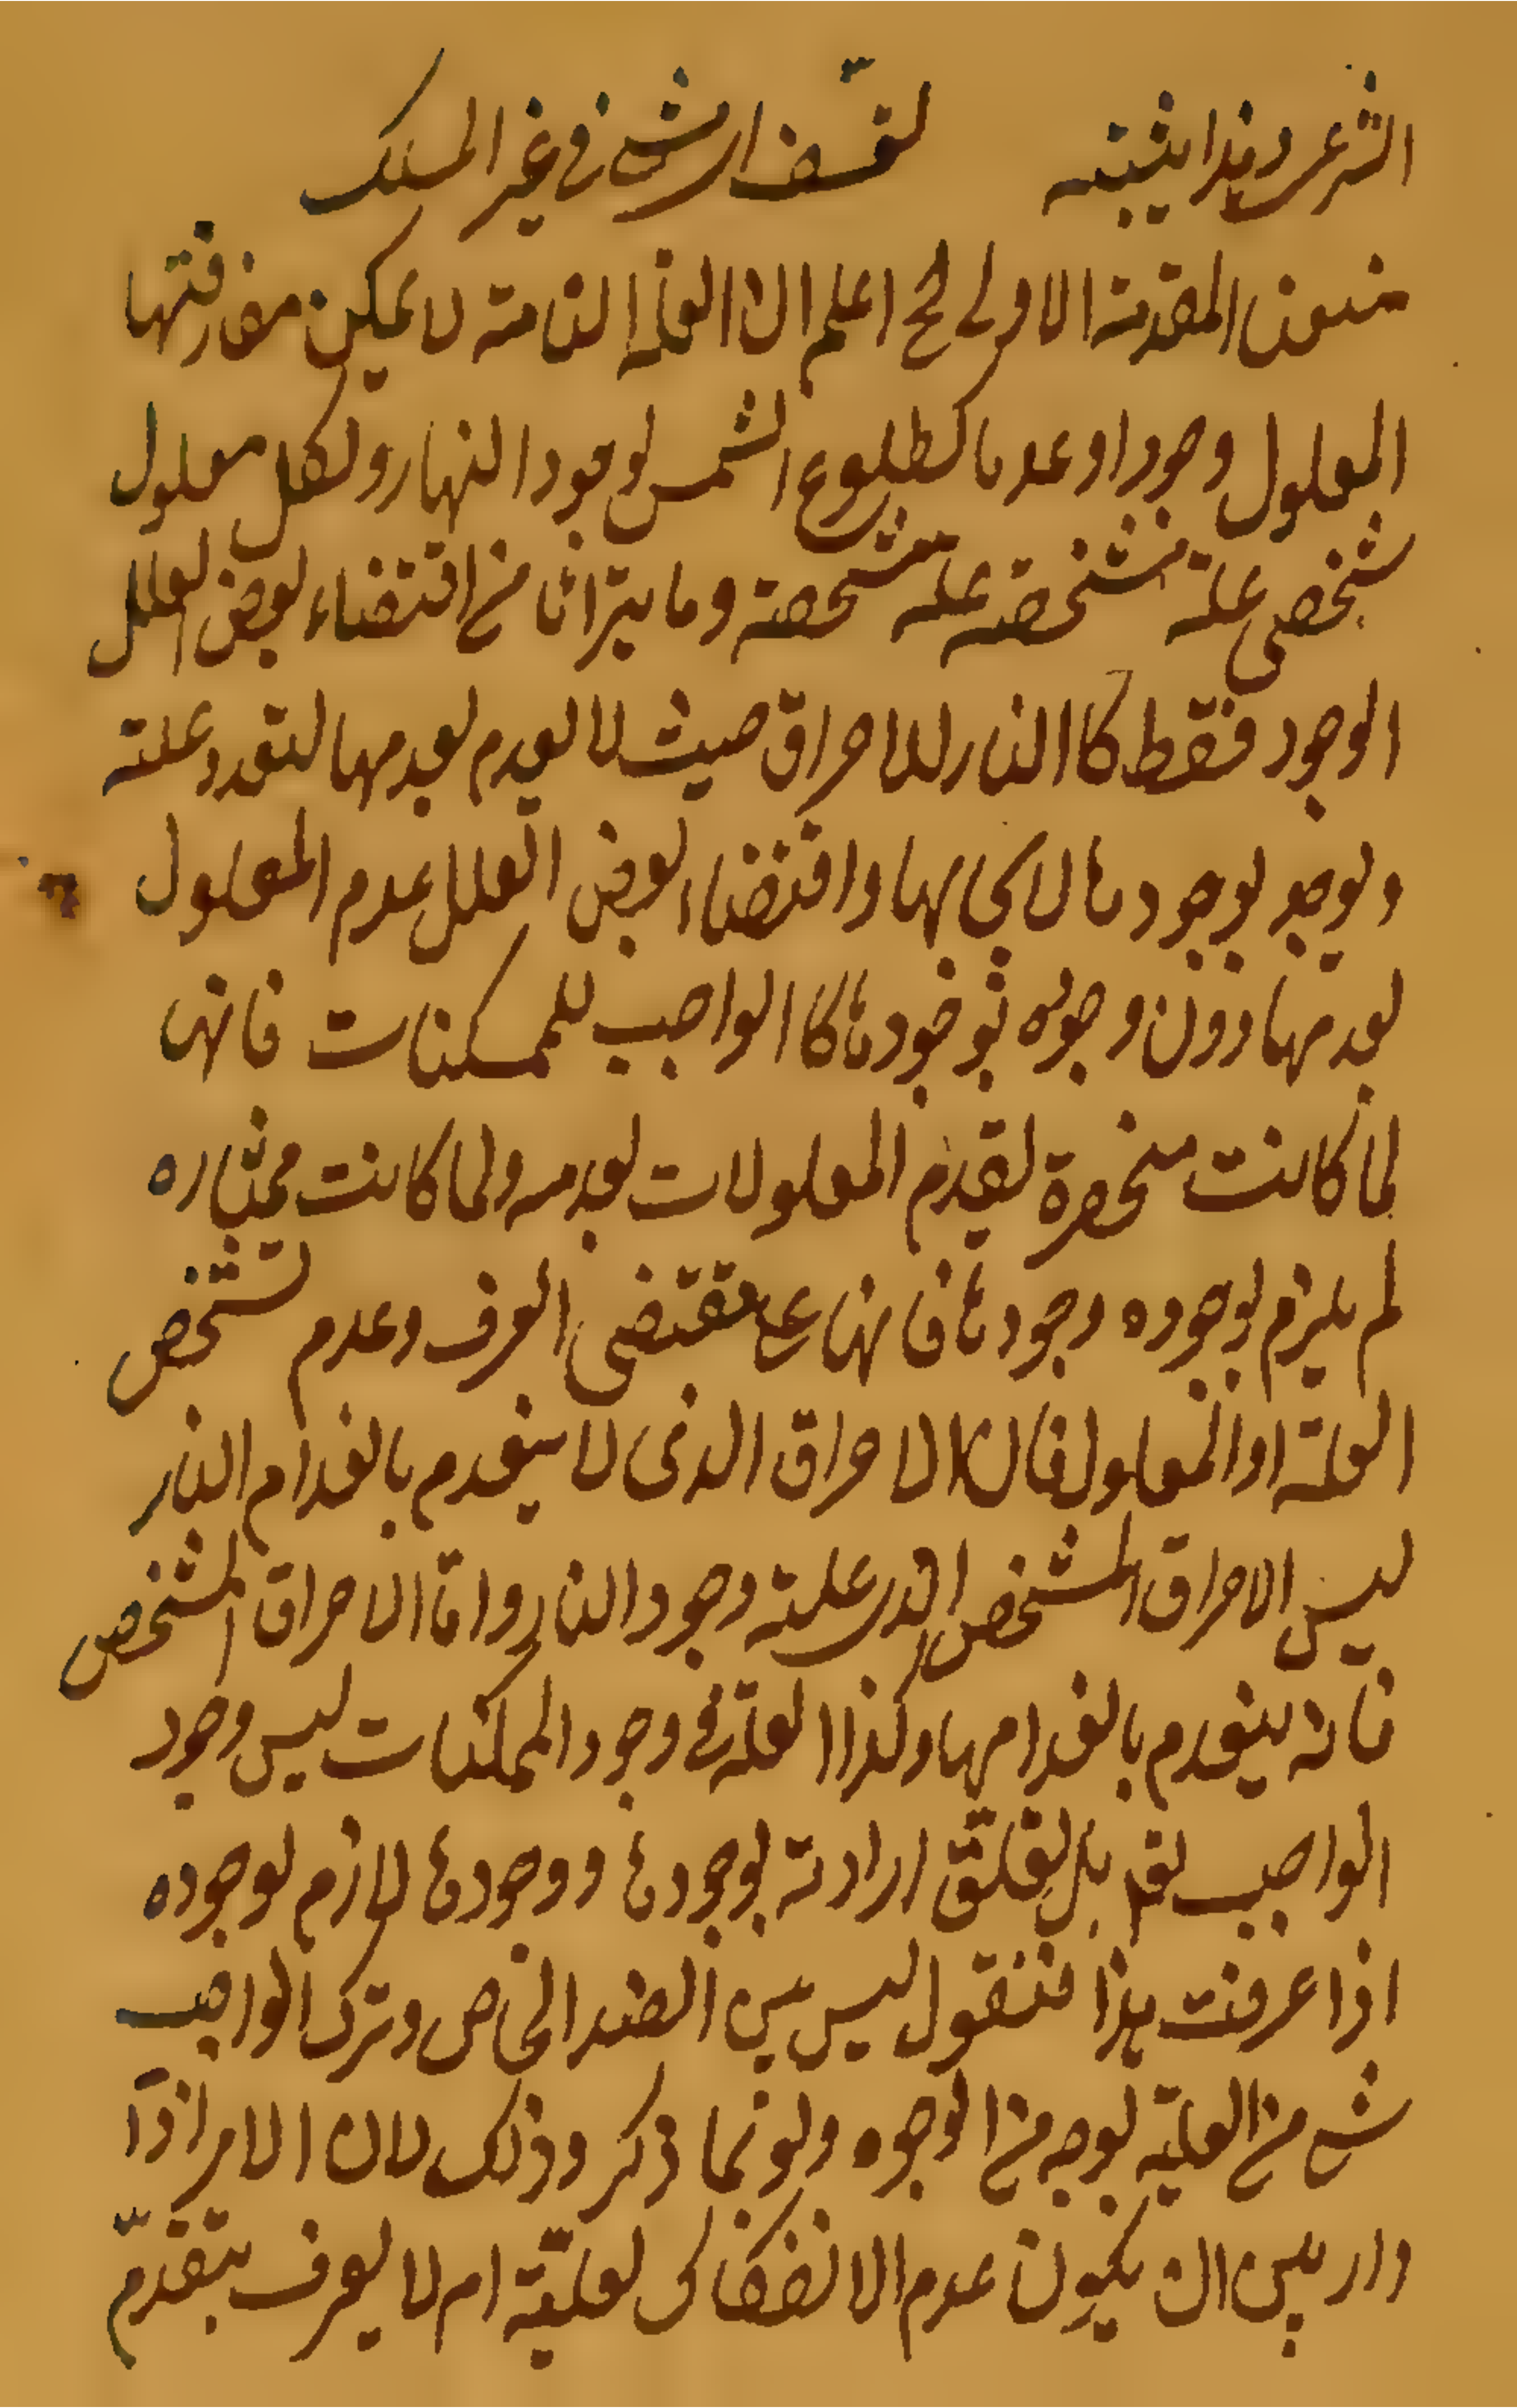 الشرعى وبهذا يثبته لتوقف ارشى فى غير المسلك
منعون المقدمة الاولى لمح اعلم ان العلة التامة لا يمكن مفارقتها
المعلول وجودا وعدما كطلوع الشمس لوجود النهار ولكل معلول
شخصى علة مشخصة علة مشخصة وما يترا اا من اقتضاء بعض العلل
الوجود فقط كا النار للاحراق حيث لا يعدم بعدمها لتعدد علته
ويوجد بوجود ما لا يحا بها واقتضاء بعض العلل عدم المعلول
بعدمها دون وجوده بوجودها كا الواجب للممكنات فانها
لما كانت منحصرة لقدم المعلولات بعدمه ولما كانت مختاره
لم يلزم بوجوده وجودها فانها على مقتضى العرف وعدم تشخص
العلة او المعلول فان الاحراق الذى لا ينعدم بانعدام النار
ليس الاحراق المشخص الذى علية وجود النار واما الاحراق المشخص
فانه ينعدم بانعدامها وكذا العلة فى وجود الممكنات ليس وجود
الواجب فقط بل تعلق ارادته بوجودها ووجودها لازم لوجوده
اذا عرفت هذا فنقول ليس بين الضد الخاص وترك الواجب
شئ من العلية بوجه من الوجوه ولو نما ذكر وذلك لان الامر اذا
دار بين ان يكون عدم الانفكاك لعلية ام لا يعرف بتقدم